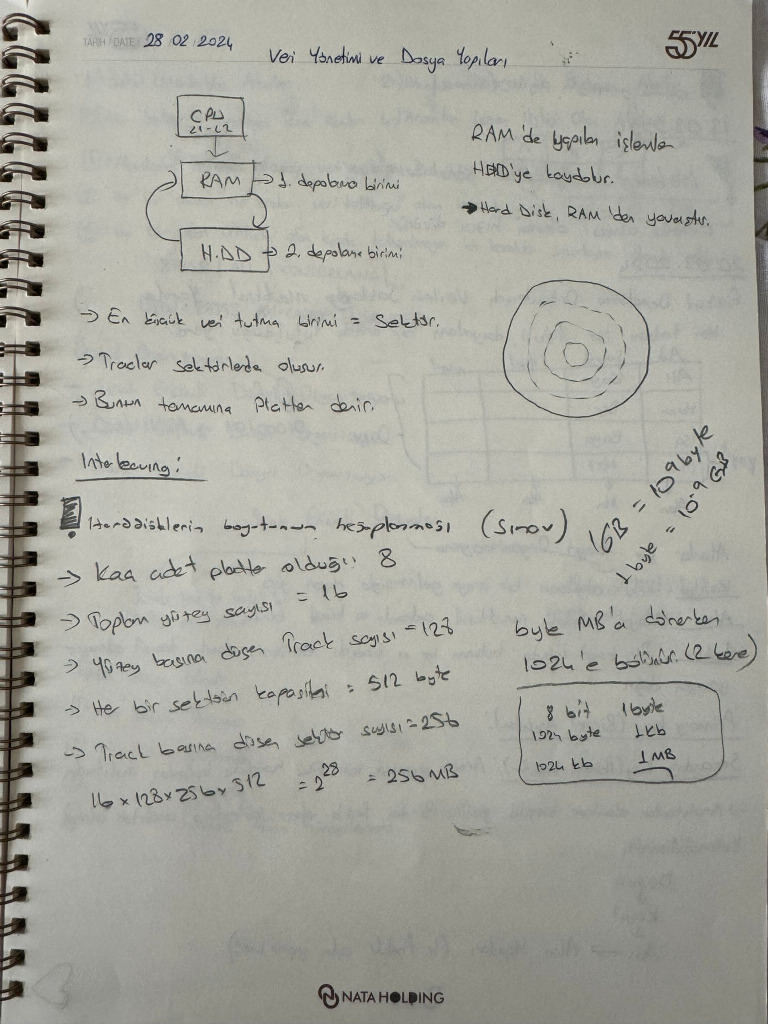 TARİH / DATE: 28/02/2024
55.YIL
Veri Yönetimi ve Dosya Yapıları
CPU
L1-L2
RAM → 1. depolama birimi
H.DD → 2. depolama birimi
RAM'de yapılan işlemler
HDD'ye kaydolur.
→ Hard Disk, RAM'den yavaştır.
→ En küçük veri tutma birimi = Sektör.
→ Traclar sektörlerde oluşur.
→ Bunun tamamına Platter denir.
Interleaving:
! Harddisklerin boyutunun hesaplanması (Sınav)
1GB = 10^9 byte
1 byte = 10^-9 GB
→ Kaa adet platter olduğu: 8
→ Toplam yüzey sayısı = 16
→ Yüzey başına düşen Track sayısı = 128
→ Her bir sektörün kapasitesi = 512 byte
→ Track başına düşen sektör sayısı = 256
16 x 128 x 256 x 512 = 2^28 = 256 MB
byte MB'a dönerken
1024'e bölünür. (2 kere)
8 bit 1 byte
1024 byte 1kb
1024 kb 1 MB
NATA HOLDING